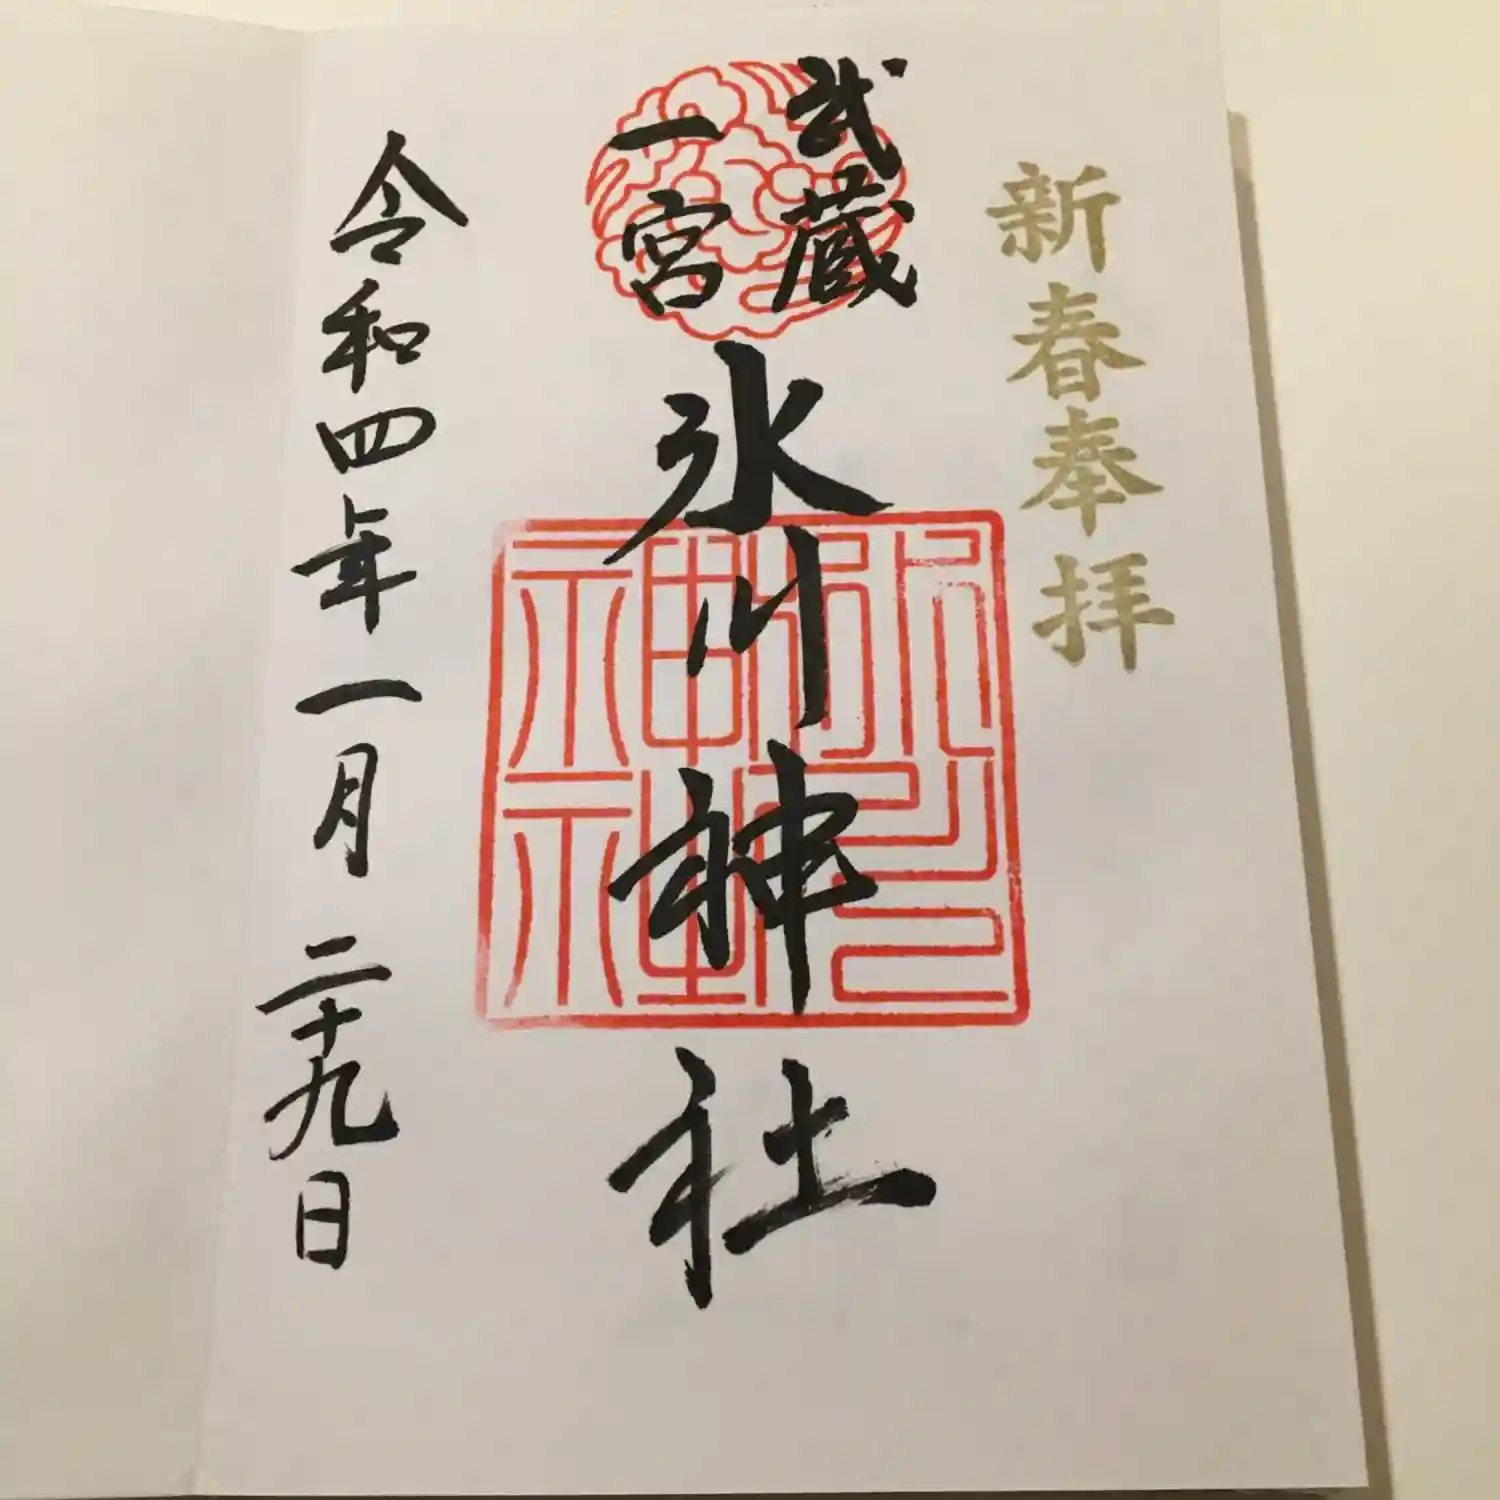 新春奉拝
武蔵
一宮
氷川神社
令和四年一月二十九日